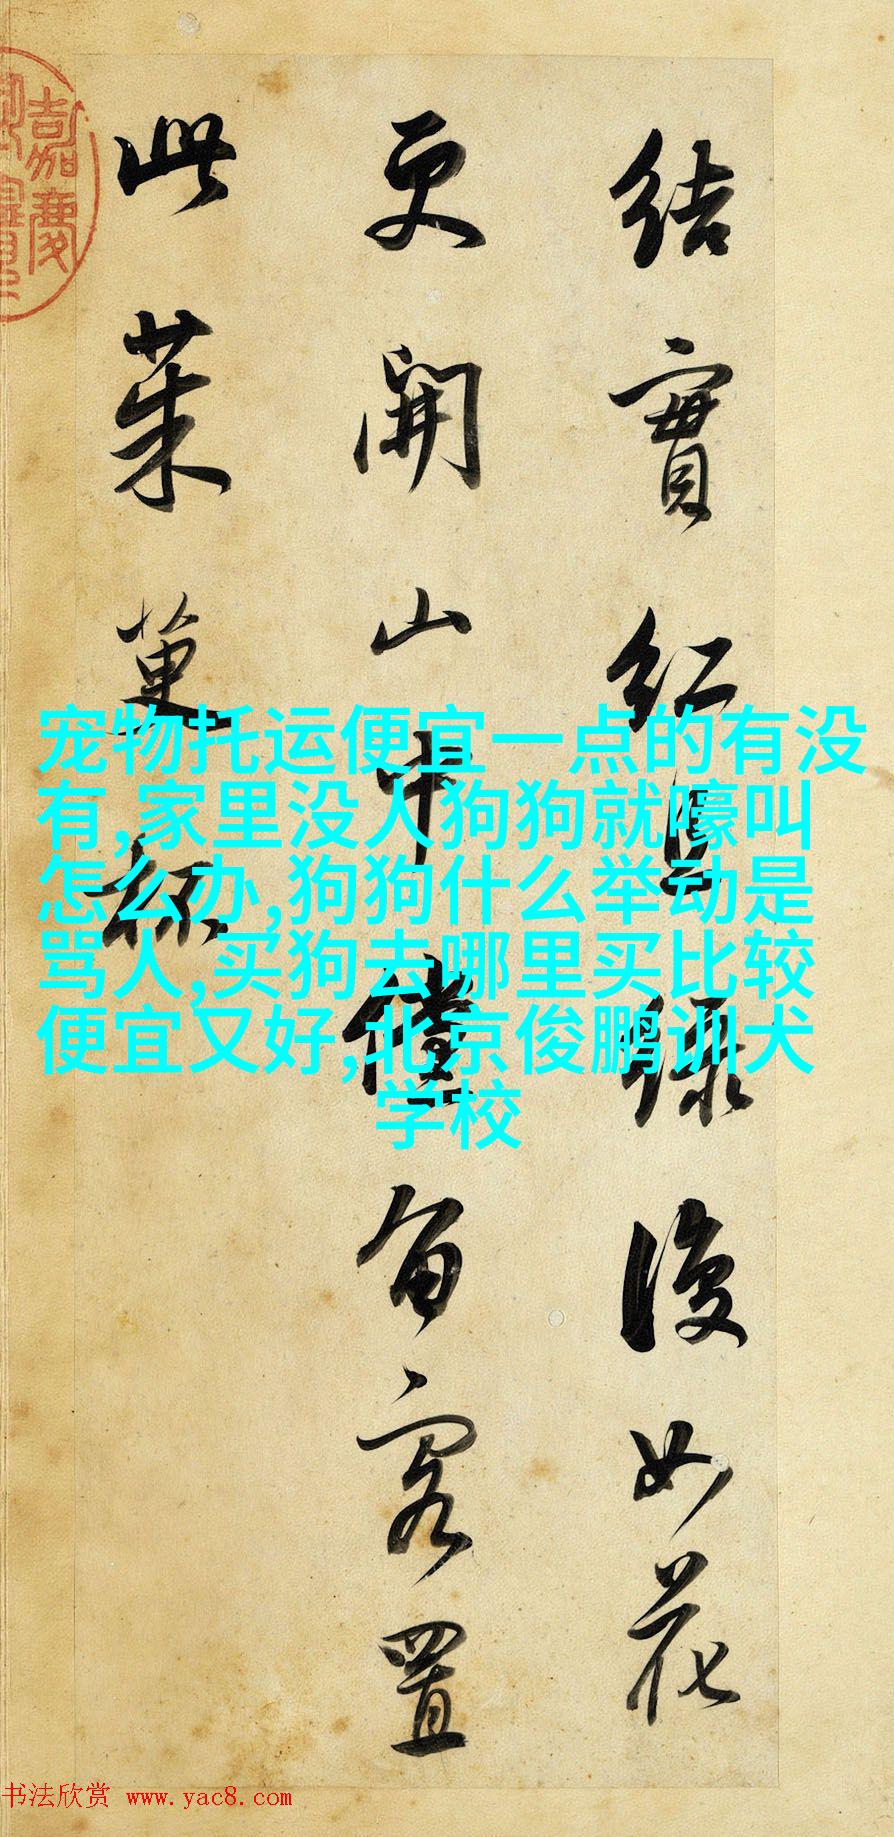 結實紅且綠復如花
更開山中儻留客置
此茱萸杯
嘉慶
宠物托运便宜一点的有没
有,家里没人狗狗就嚎叫
怎么办,狗狗什么举动是
骂人,买狗去哪里买比较
便宜又好,北京俊鹏训犬
学校
书法欣赏 www.yac8.com